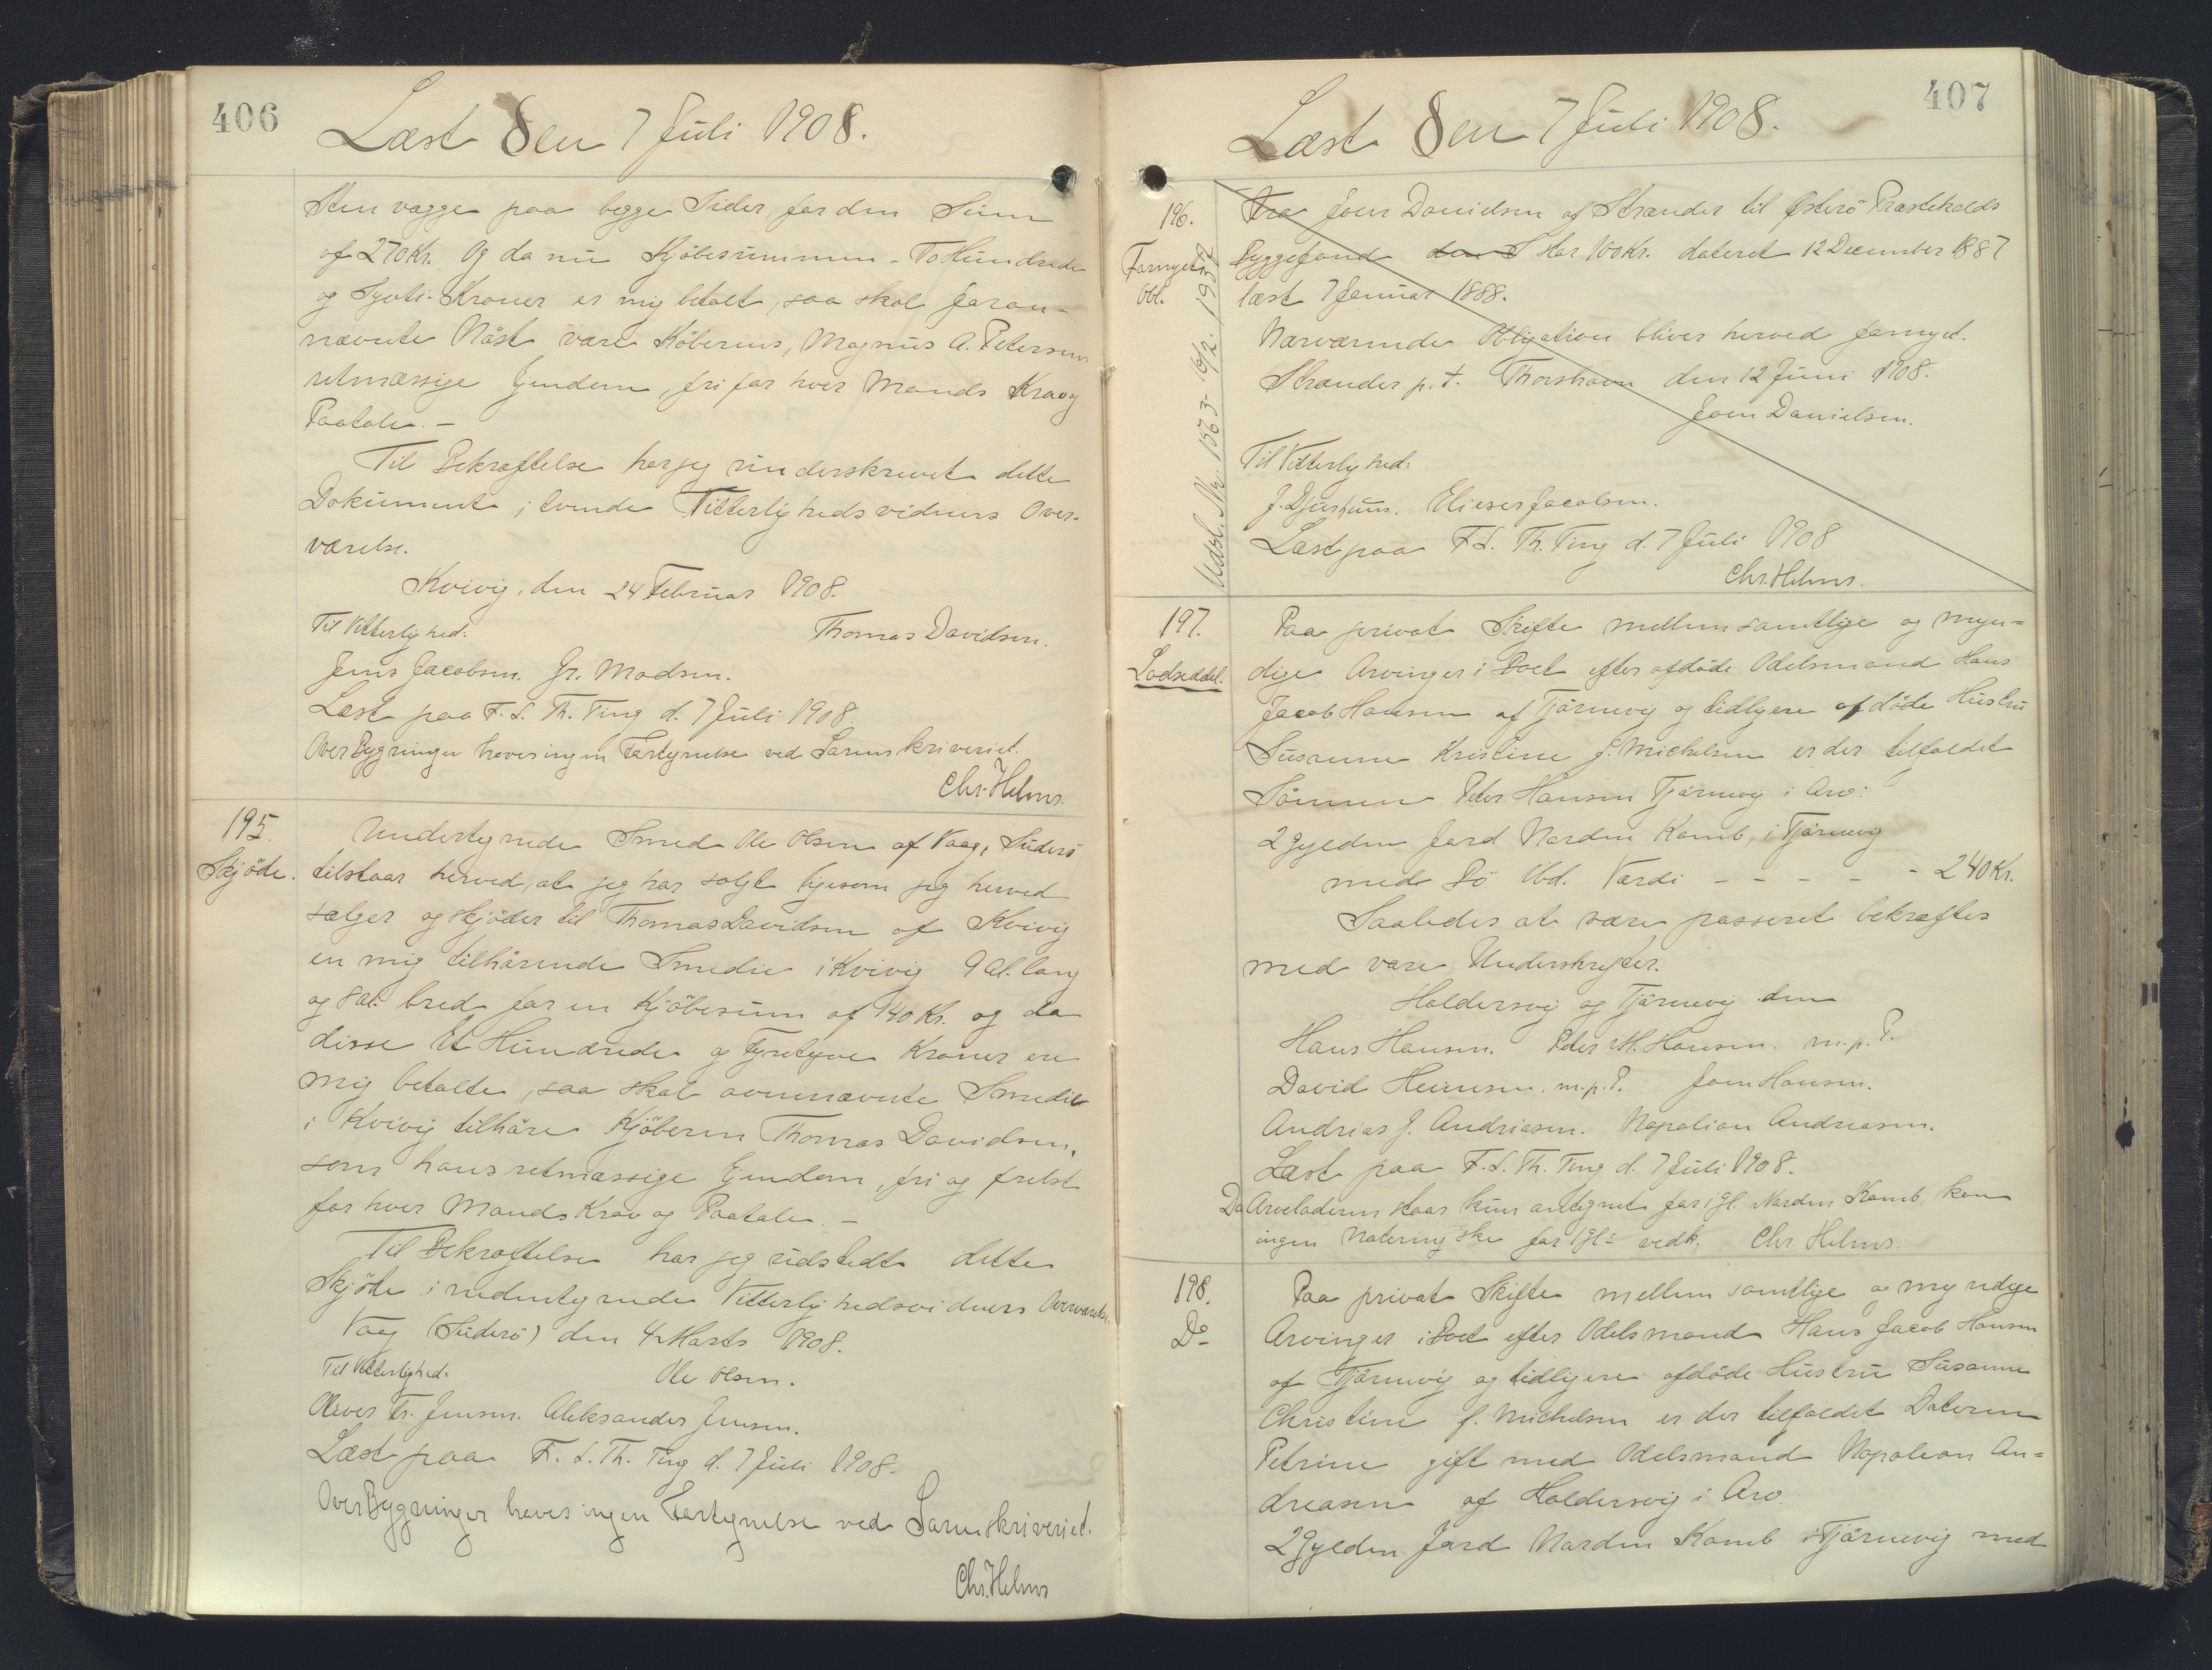 406
Læst Den 7 Juli 1908.
Sten vægge paa begge Sider, for den Sum
af 270 Kr. Og da nu Kjöbesummen - To Hundrede
og Syvti Kroner er mig betalt, saa skal foran-
nævnte Nåst være Köberens, Magnus A. Petersens
retmæssige Ejendom, fri for hver Mands Krav og
Paatale. -
Til Bekræftelse har jeg underskrevet dette
Dokument i tvende Vitterligheds vidners Over-
værelse.
Kvivig, den 24 Februar 1908.
Til Vitterlighed:
Thomas Davidsen.
Jens Jacobsen. Gr. Madsen.
Læst paa F. S. Th. Ting d. 7 Juli 1908.
Over Bygninger haves ingen Fortegnelse ved Sorenskriveriet.
Chr. Helms.
195.
Skjöde.
Undertegnede Smed Ole Olsen af Vaag, Suderö
tilstaar herved, at jeg har solgt ligesom jeg herved
sælger og skjöder til Thomas Davidsen af Kvivig
en mig tilhörende Smedie i Kvivig 9 Al. lang
og 8 Al. bred for en Kjöbesum af 140 Kr. og da
disse Et Hundrede og Fyretyve Kroner ere
mig betalte, saa skal ovennævnte Smedie
i Kvivig tilhöre Kjöberen Thomas Davidsen,
som hans retmæssige Ejendom, fri og frelst
for hver Mands Krav og Paatale. -
Til Bekræftelse har jeg udstedt dette
Skjöte i nedentegnede Vitterlighedsvidners Overværelse.
Vaag (Suderö) den 4 Marts 1908.
Til Vitterlighed:
Ole Olsen.
Oliver Fr. Jensen. Aleksander Jensen.
Læst paa F. S. Th. Ting d. 7 Juli 1908.
Over Bygninger haves ingen Fortegnelse ved Sorenskriveriet.
Chr. Helms
407
Læst Den 7 Juli 1908.
196.
Fornyet
Obl.
Udsl. Nr. 1563 - 10/2 1932
Fra Joen Danielsen af Strænder til Österö Præstekalds
Byggefond den S stor 100 Kr. dateret 12 December 1887
læst 7 Januar 1888.
Nærværende Obligation bliver herved fornyet.
Strænder p. t. Thorshavn den 12 Juni 1908.
Joen Danielsen.
Til Vitterlighed:
J. Djurhuus. Elieser Jacobsen.
Læst paa F. S. Th. Ting d. 7 Juli 1908
Chr. Helms.
197.
Lodseddel.
Paa privat Skifte mellem samtlige og myn=
dige Arvinger i Boet efter afdöde Odelsmand Hans
Jacob Hansen af Tjörnevig og tidligere afdöde Hustru
Susanne Kristine f. Michelsen er der tilfaldet
Sönnen Peter Hansen Tjörnevig i Arv:
2 Gylden Jord Norden Kamb, i Tjörnevig
med Bö Ubd. Værdi - - - - - 240 Kr.
Saaledes at være passeret bekræftes
med vore Underskrifter.
Haldersvig og Tjörnevig den
Hans Hansen. Peter M. Hansen. m. p. P.
David Heinesen. m. p. P. Joen Hansen.
Andrias J. Andriasen. Napolion Andreasen.
Læst paa F. S. Th. Ting d. 7 Juli 1908.
Da Arveladeren staar kun antegnet for 1 gl. Norden Kamb, kan
ingen Notering ske for 1 gl.s vedk. Chr. Helms.
198.
Do
Paa privat Skifte mellem samtlige og myndige
Arvinger i Boet efter Odelsmand Hans Jacob Hansen
af Tjörnevig og tidligere afdöde Hustru Susanne
Christine f. Michelsen er der tilfaldet Datteren
Petrine gift med Odelsmand Napoleon An=
dreasen af Haldersvig i Arv.
2 Gylden Jord Norden Kamb i Tjörnevig med